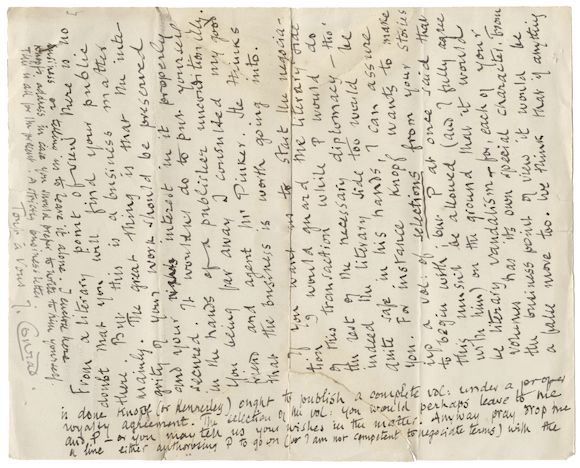 From a literary point of view there is no
doubt that you will find your public
there. But this is a business matter
mainly. The great thing is that the inte-
grity of your work should be preserved
and your interest in it properly
secured. It wouldn't do to put yourself
in the hands of a publisher unconditionally.
You being far away I consulted my good
friend and agent Mr Pinker. He thinks
that the business is worth going into.
If you want us to start the negocia-
tion I would guard the literary side
of this transaction while P would do
the rest of the necessary diplomacy — tho'
indeed the literary side too would be
quite safe in his hands I can assure
you. For instance Knopf wants to make
up a vol of selections from your stories
to begin with; but P at once said that
this musn't be allowed (and I fully agree
with him) on the ground that it would
be literary vandalism — for each of your
volumes has its own special character. From
the business point of view it would be
a false move too. We think that if anything
is done Knopf (or Kennerley) ought to publish a complete vol: under a proper
royalty agreement. The selection of the vol: you would perhaps leave to me
and P — or you may tell us your wishes in the matter. Anyway pray drop me
a line either authorising P to go on (for I am not competent to negociate terms) with the
business or telling us to leave it alone. I enclose
Knopf's address in case you should prefer to write to him yourself.
This is all for the present: a strictly business letter.
Tout à Vous J. Conrad